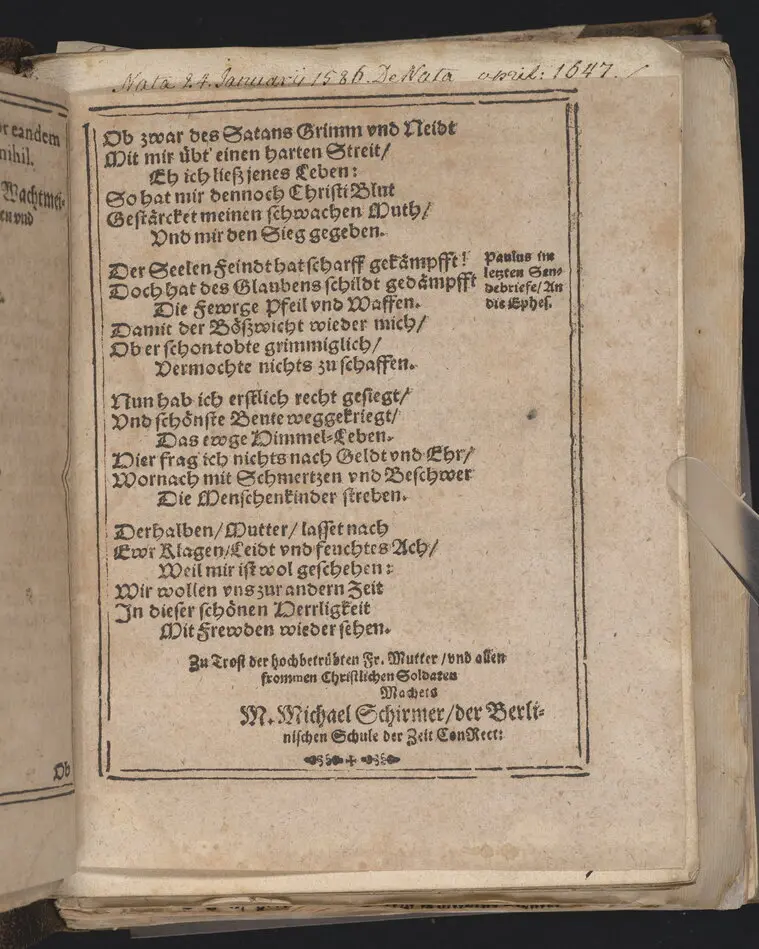 or eandem
nihil.
Wachtmei-
en vnd
Ob
Nata 24. Januarii 1586. DeNata april: 1647.
Ob zwar des Satans Grimm vnd Neidt
Mit mir übt einen harten Streit/
Eh ich ließ jenes Leben:
So hat mir dennoch Christi Blut
Gestärcket meinen schwachen Muth/
Vnd mir den Sieg gegeben.
Der Seelen Feindt hat scharff gekämpfft!
Doch hat des Glaubens schildt gedämpfft
Die Fewrge Pfeil vnd Waffen.
Paulus im
letzten Sen-
debriefe/An
die Ephes.
Damit der Bößwicht wieder mich/
Ob er schon tobte grimmiglich/
Vermochte nichts zu schaffen.
Nun hab ich erstlich recht gesiegt/
Vnd schönste Bente weggekriegt/
Das ewge Himmel-Leben.
Hier frag ich nichts nach Geldt vnd Ehr/
Wornach mit Schmertzen vnd Beschwer
Die Menschenkinder streben.
Derhalben/Mutter/lasset nach
Ewr Klagen/Leidt vnd feuchtes Ach/
Weil mir ist wol geschehen:
Wir wollen vns zur andern Zeit
In dieser schönen Herrligkeit
Mit Frewden wieder sehen.
Zu Trost der hochbetrübten Fr. Mutter/vnd allen
frommen Christlichen Soldaten
Machets
M. Michael Schirmer/der Berli-
nischen Schule der Zeit ConRect: